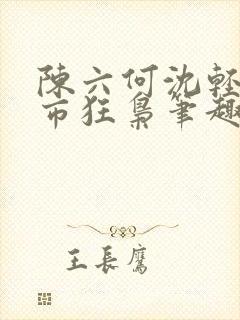 陳六何沈輕
市狂梟筆趣
王長鷹